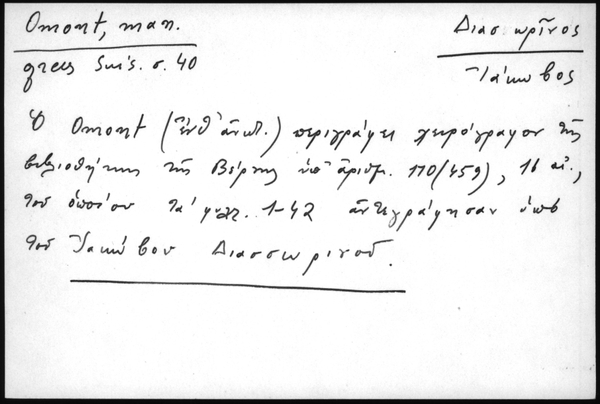 Omont, man.
grecs Suis. σ. 40
Διασωρῖνος
Ἰάκωβος
Ὁ Omont (ἔνθ' ἀνωτ.) περιγράφει χειρόγραφον τῆς
βιβλιοθήκης τῆς Βέρνης ὑπ' ἀριθμ. 110/459), 16 αἰ.,
τοῦ ὁποίου τὰ φυλλ. 1-42 ἀντεγράφησαν ὑπὸ
τοῦ Ἰακώβου Διασσωρινοῦ.